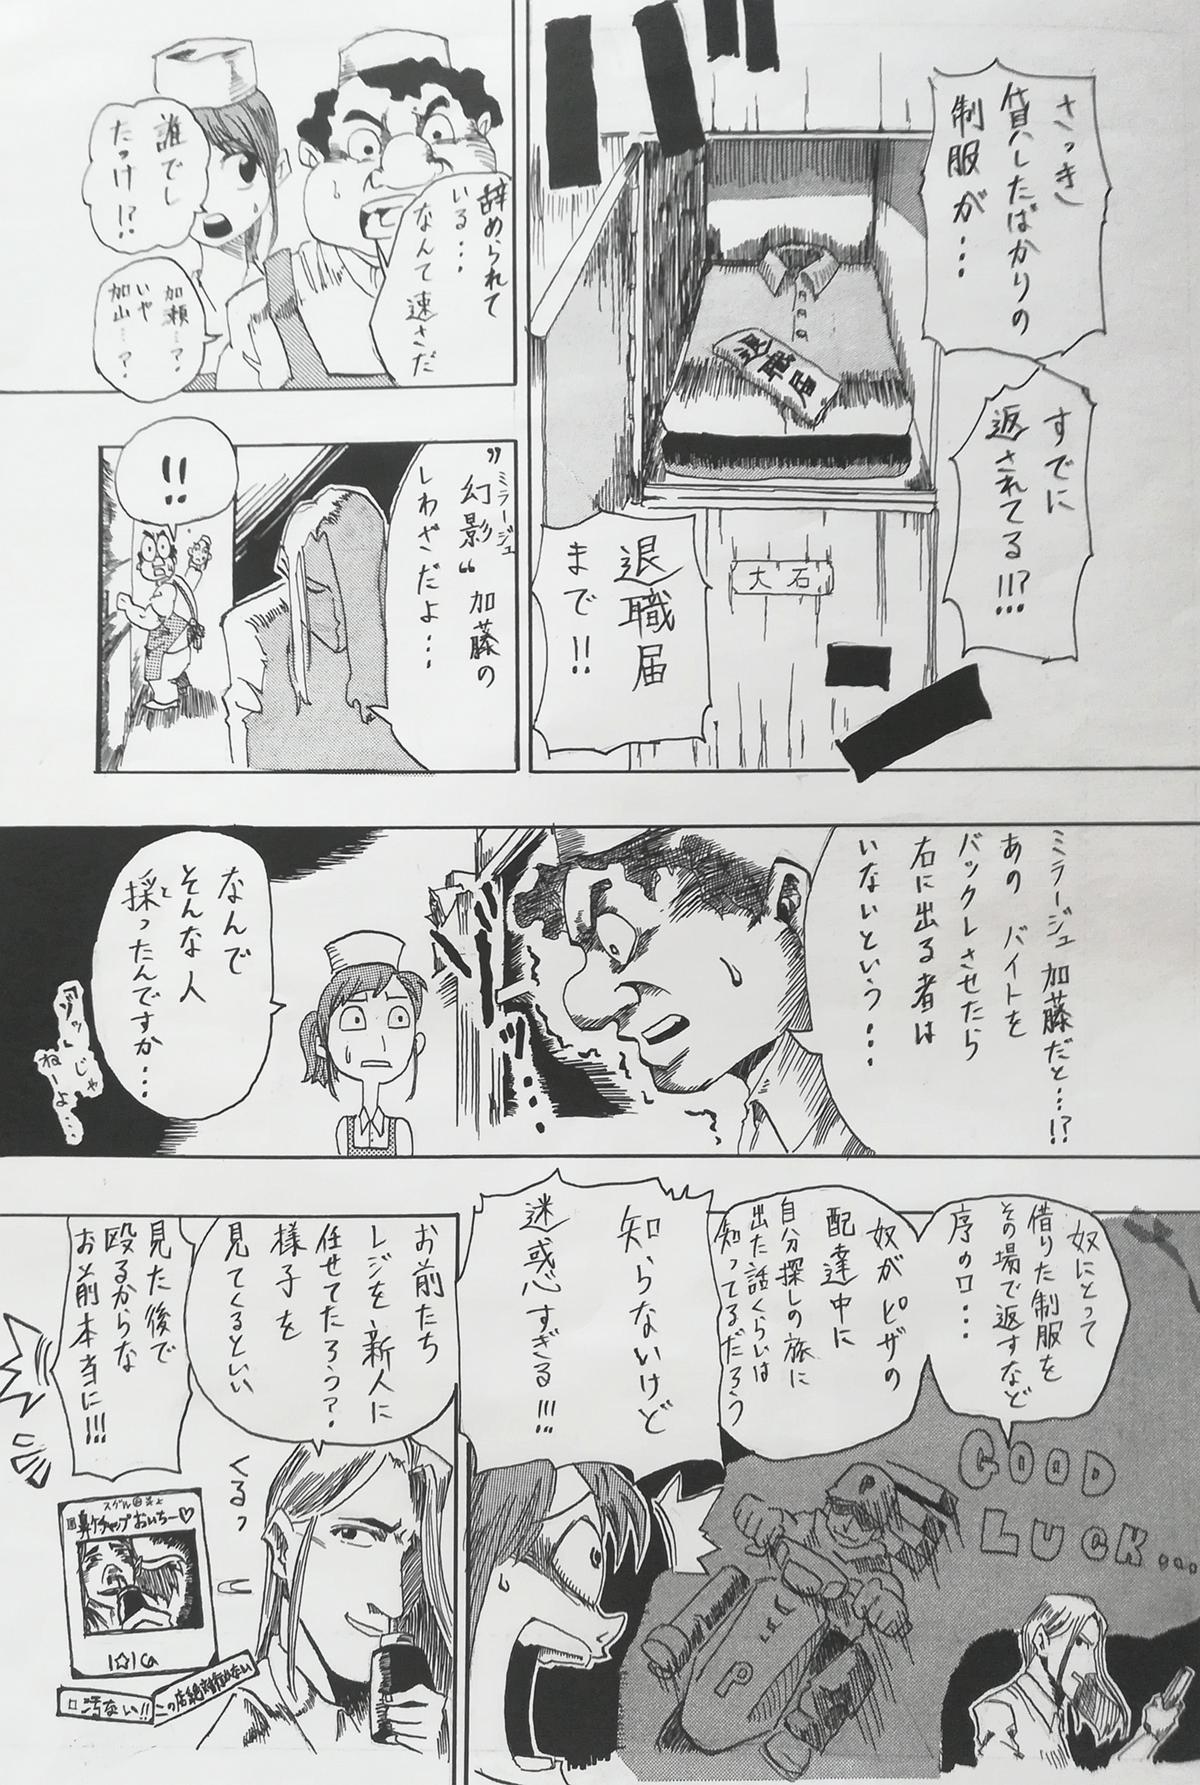 さっき
貸したばかりの
制服が…
すでに
返されてる!!!?
退職届
大石
退職届
まで!!
辞められて
いる…
なんて速さだ
誰でし
たっけ!?
加瀬…?
いや
加山…?
ミラージュ
"幻影"加藤の
しわざだよ…
!!
ミラージュ加藤だと…!?
あの バイトを
バックレさせたら
右に出る者は
いないという…
なんで
そんな人
採ったんですか…
と
じゃ
ねーよ…
奴にとって
借りた制服を
その場で返すなど
序の口…
奴がピザの
配達中に
自分探しの旅に
出た話くらいは
知ってるだろう
GOOD
LUCK...
P
知らないけど
迷惑すぎる!!!
お前たち
レジを新人に
任せてたろう?
様子を
見てくるといい
くるっ
見た後で
殴るからな
お前本当に!!!
鼻ケチャップおいちー♡
この店絶対行かない
口汚ない!!